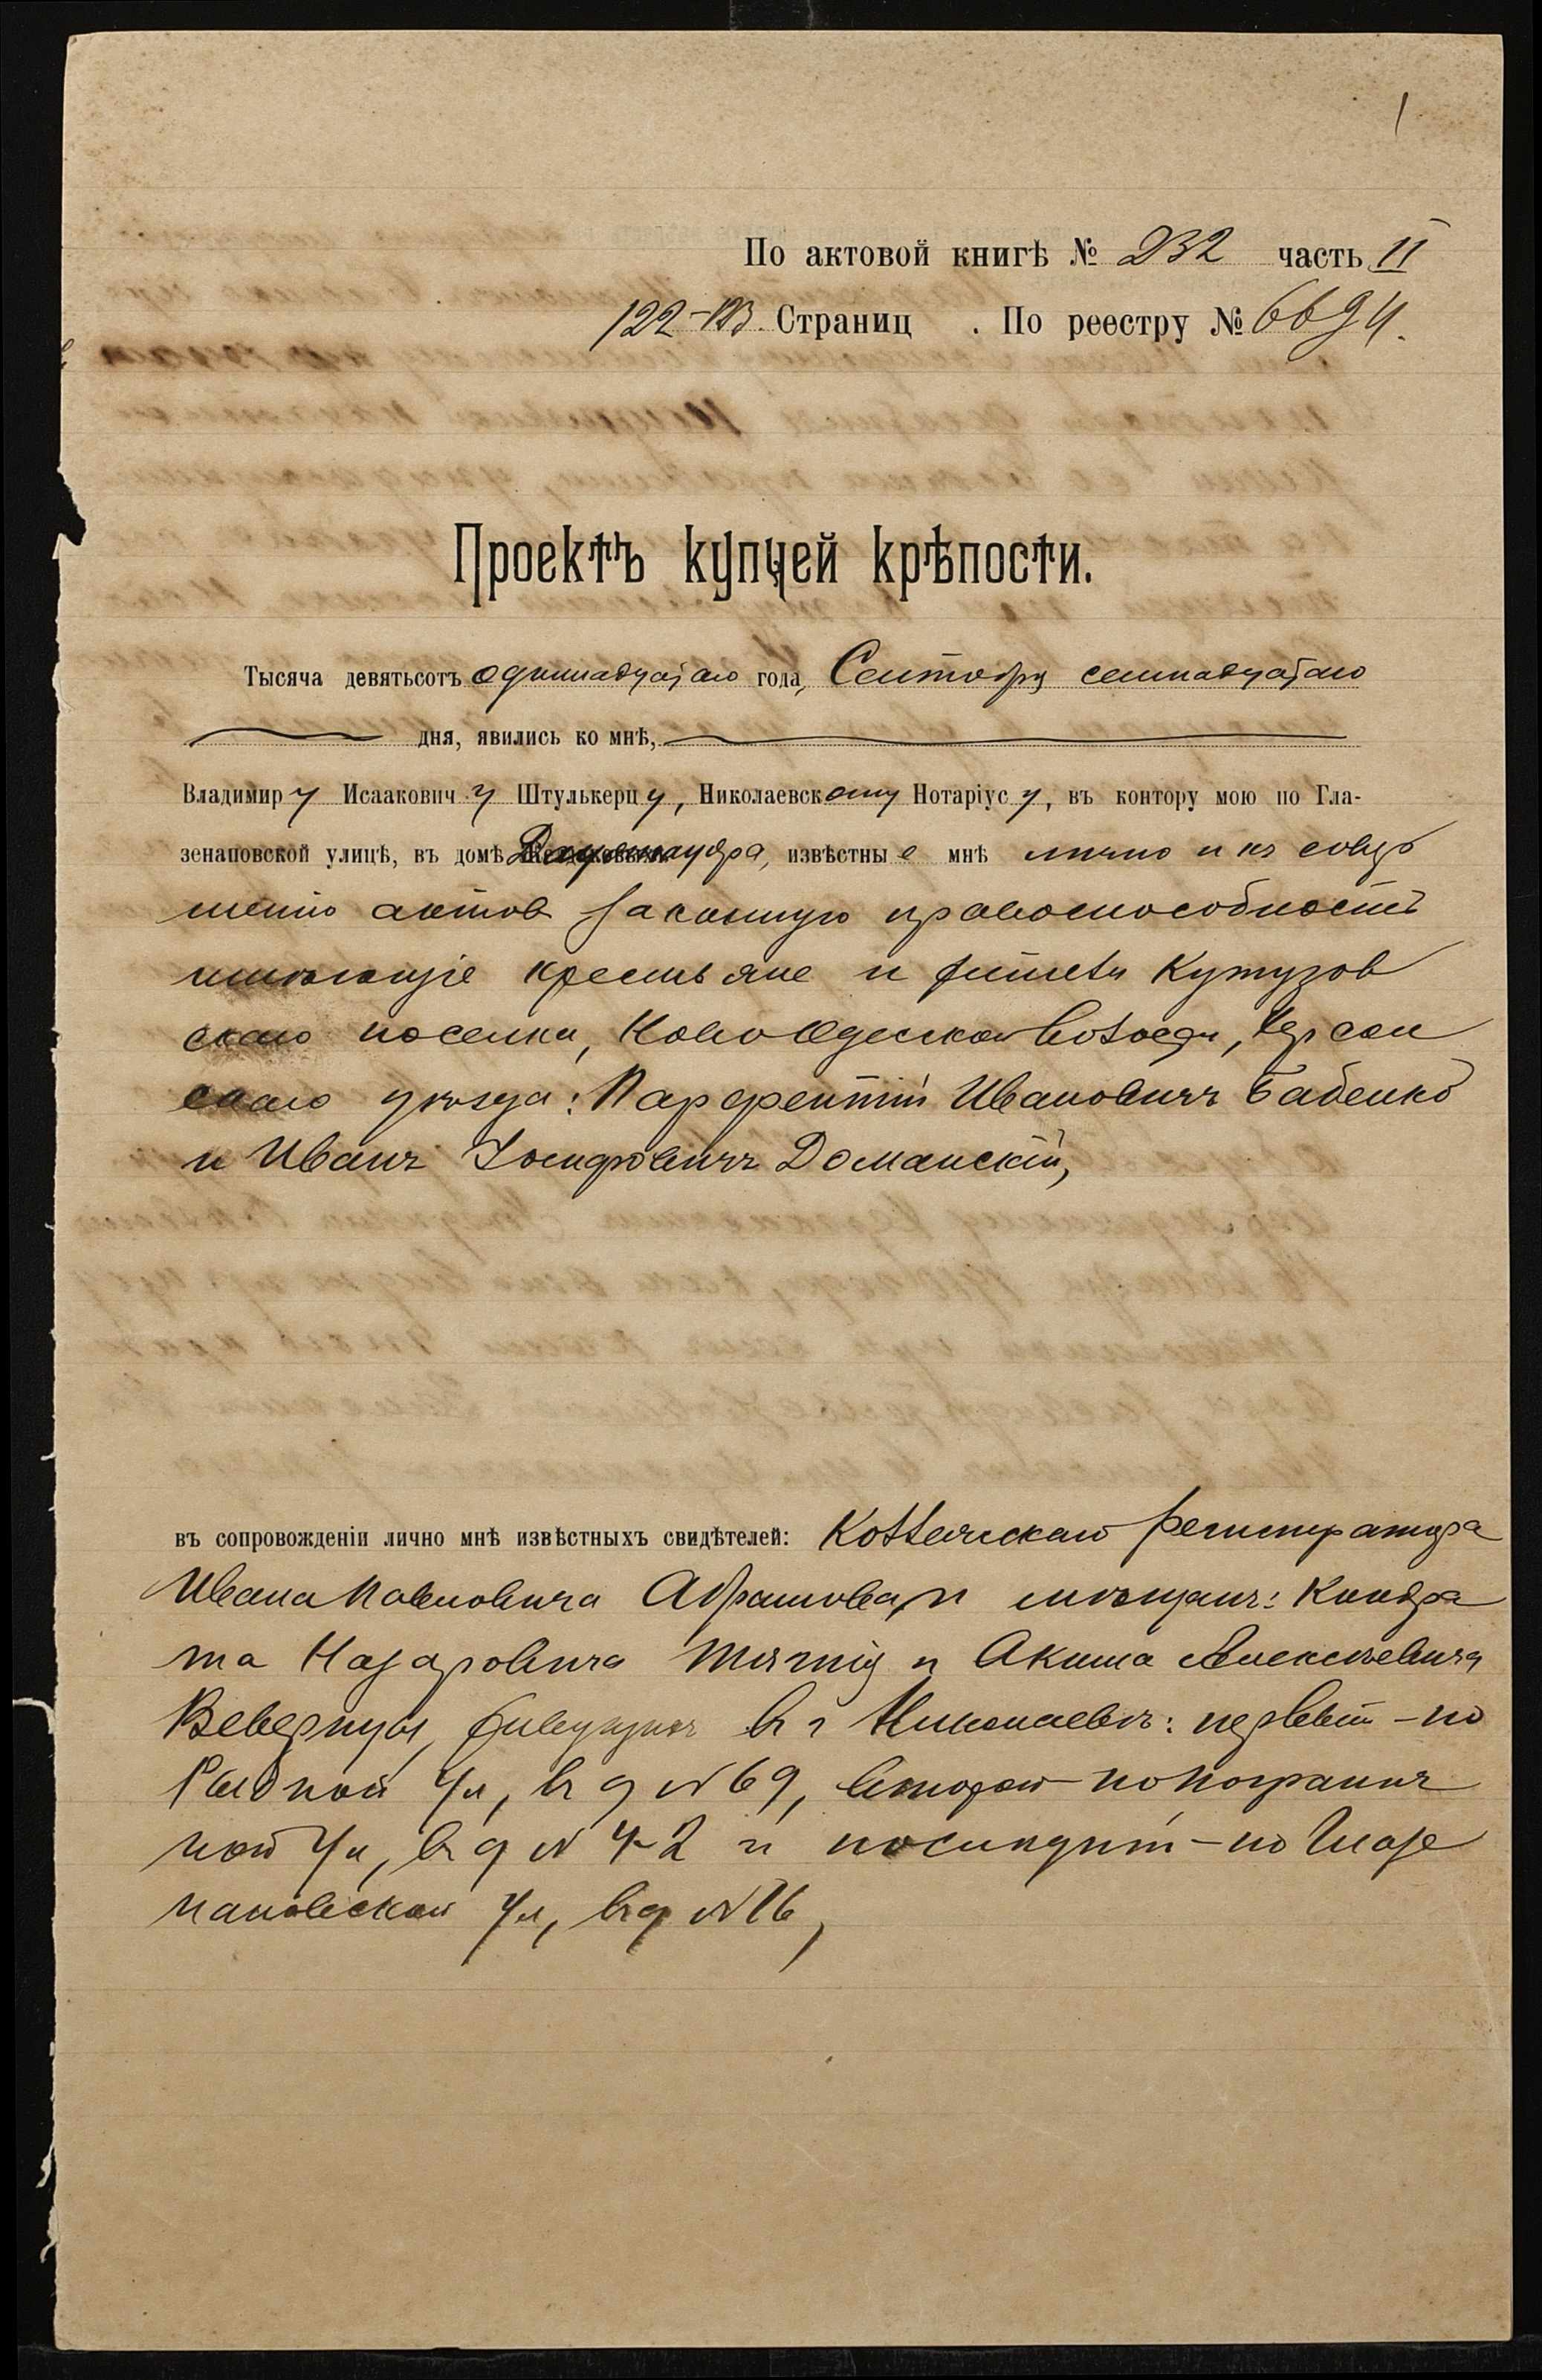 1
По актовой книгѣ № 232 часть II
122-123. Страниц . По реестру № 6694.
Проектъ купчей крѣпости.
Тысяча девятьсотъ одиннадцатаго года, Сентября семнадцатаго
дня, явились ко мнѣ,
Владимиру Исааковичу Штулькерцу, Николаевскому Нотаріусу, въ контору мою по Гла-
зенаповской улицѣ, въ домѣ извѣстные мнѣ лично и къ совер
шенію актов законную правоспособность
имѣющіе крестьяне и жители Кутузов
скаго поселка, Ново Одесской волости, Херсон
скаго уѣзда: Парфентій Ивановичъ Бабенко
и Иванъ Іосифовичъ Доманскій,
въ сопровожденіи лично мнѣ извѣстныхъ свидѣтелей: Коллежскаго Регистратора
Ивана Павловича Абрамова, и мѣщанъ: Кондра
та Назаровича и Акима Алексѣевича
живущихъ въ г Николаевѣ: первый - по
Рыбной ул, въ д № 69, второй - по Погранич
ной ул, въ д № 42 и послѣдній - по Глазе
наповской ул, въ д № 16,